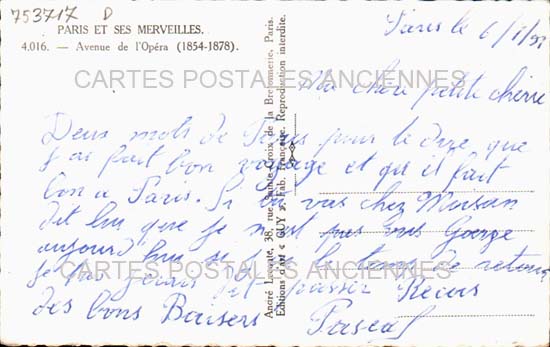 753717 D
PARIS ET SES MERVEILLES.
4.016. — Avenue de l'Opéra (1854-1878).
Paris le 6/1/5
Ma chère petite chérie
Deux mots de Paris pour te dire que
j'ai fait bon voyage et qu'il fait
bon à Paris. Si tu vas chez
dit lui que je n'est pas vus George
aujourd'hui si le temps de retour
je
des bons Baisers Reçois
Pascal
André Leconte, 38, rue Sainte-Croix de la Bretonnerie, Paris.
Editions d'art « GUY ». Fab. Française. Reproduction interdite.
CARTES POSTALES ANCIENNES
CARTES POSTALES ANCIENNES